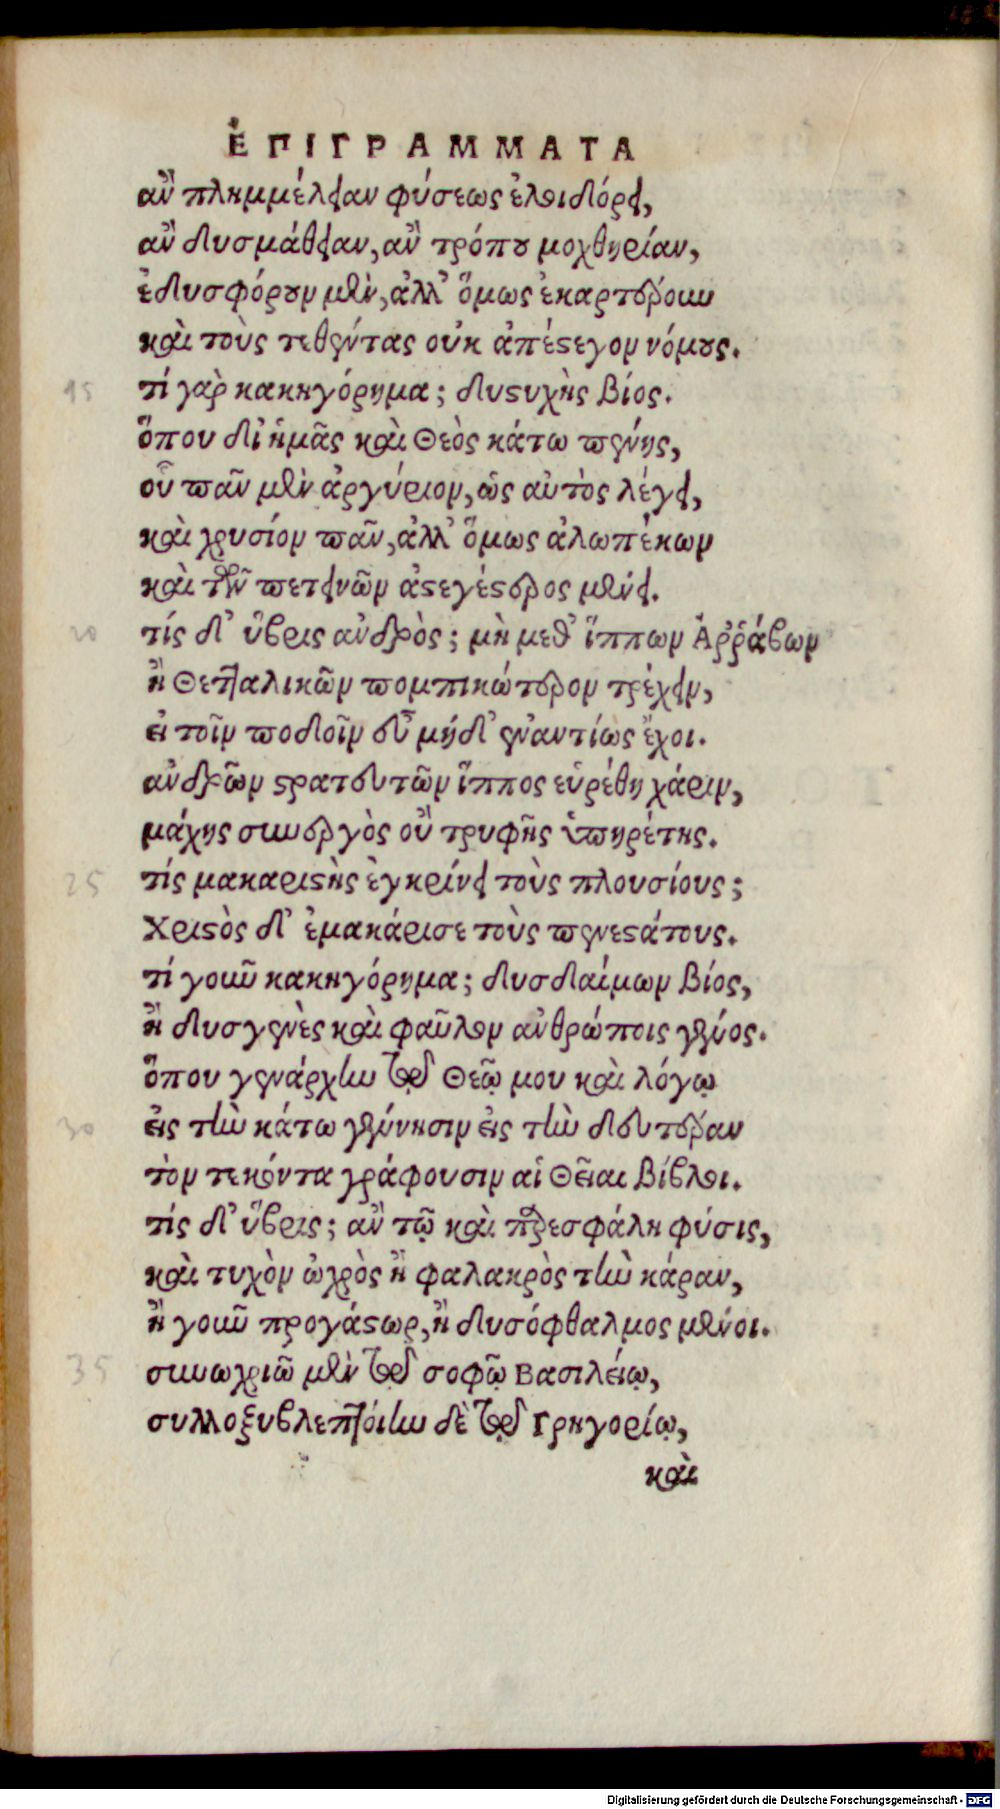 ἘΠΙΓΡΑΜΜΑΤΑ
ἂν πλημμέλειαν φύσεως ἐλοιδόρει,
ἂν δυσμάθειαν, ἂν τρόπου μοχθηρίαν,
ἐδυσφόρουν μὲν, ἀλλ' ὅμως ἐκαρτέρουν
καὶ τοὺς τεθέντας οὐκ ἀπέστεγον νόμους.
15 τί γὰρ κακηγόρημα; δυστυχὴς βίος.
ὅπου δι' ἡμᾶς καὶ Θεὸς κάτω πένης,
οὗ πᾶν μὲν ἀργύριον, ὡς αὐτὸς λέγει,
καὶ χρυσίον πᾶν, ἀλλ' ὅμως ἀλωπέκων
καὶ τῶν πετεινῶν ἀστεγέστερος μένει.
20 τίς δ' ὕβρις ἀνδρὸς; μὴ μεθ' ἵππων Ἀῤῥάβων
ἢ Θετταλικῶν πομπικώτερον τρέχειν,
εἰ τοῖν ποδοῖν εὖ μήδ' ἐναντίως ἔχοι.
ἀνδρῶν στρατευτῶν ἵππος εὑρέθη χάριν,
μάχης συνεργὸς οὐ τρυφῆς ὑπηρέτης.
25 τίς μακαριστὴς ἐγκρίνει τοὺς πλουσίους;
Χριστὸς δ' ἐμακάρισε τοὺς πενεστάτους.
τί γοῦν κακηγόρημα; δυσδαίμων βίος,
ἢ δυσγενὲς καὶ φαῦλον ἀνθρώποις γένος.
ὅπου γενάρχην τῷ Θεῷ μου καὶ λόγῳ
30 εἰς τὴν κάτω γέννησιν εἰς τὴν δευτέραν
τὸν τεκόντα γράφουσιν αἱ θεῖαι βίβλοι.
τίς δ' ὕβρις; ἄν τῳ καὶ παρεσφάλη φύσις,
καὶ τυχὸν ὠχρὸς ἢ φαλακρὸς τὴν κάραν,
ἢ γοῦν προγάστωρ, ἢ δυσόφθαλμος μένοι.
35 συνωχριῶ μὲν τῷ σοφῷ Βασιλείῳ,
συλλοξυβλεπτοίην δὲ τῷ Γρηγορίῳ,
καὶ
Digitalisierung gefördert durch die Deutsche Forschungsgemeinschaft - DFG